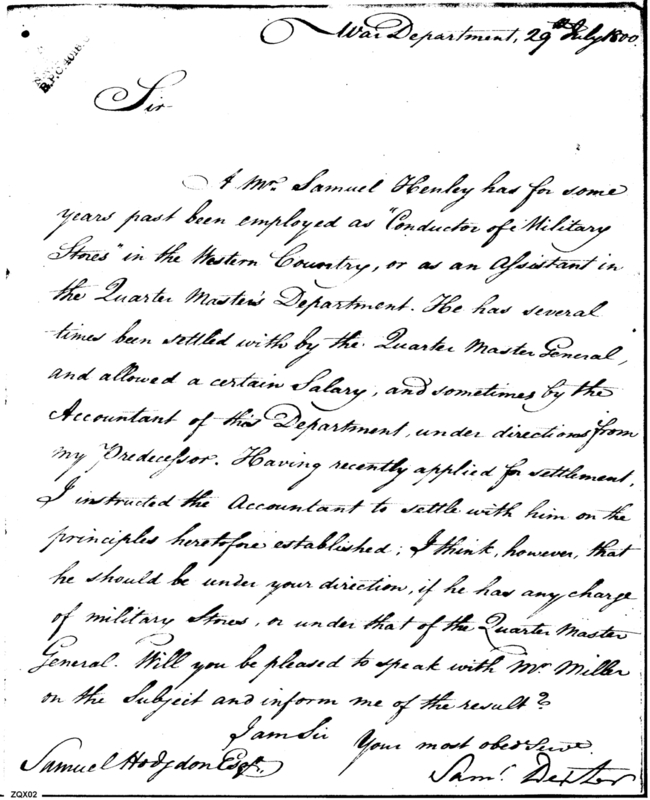 War Department, 29th July 1800.
Sir
A Mr. Samuel Henley has for some
years past been employed as "Conductor of Military
Stores" in the Western Country, or as an Assistant in
the Quarter Master's Department. He has several
times been settled with by the Quarter Master General,
and allowed a certain Salary, and sometimes by the
Accountant of this Department, under directions from
my Predecessor. Having recently applied for settlement,
I instructed the Accountant to settle with him on the
principles heretofore established; I think, however, that
he should be under your direction, if he has any charge
of military Stores, or under that of the Quarter Master
General. Will you be pleased to speak with Mr. Miller
on the Subject and inform me of the result?
I am Sir Your most obed Servt.
Samuel Hodgdon Esqr.
Saml. Dexter
ZQX02